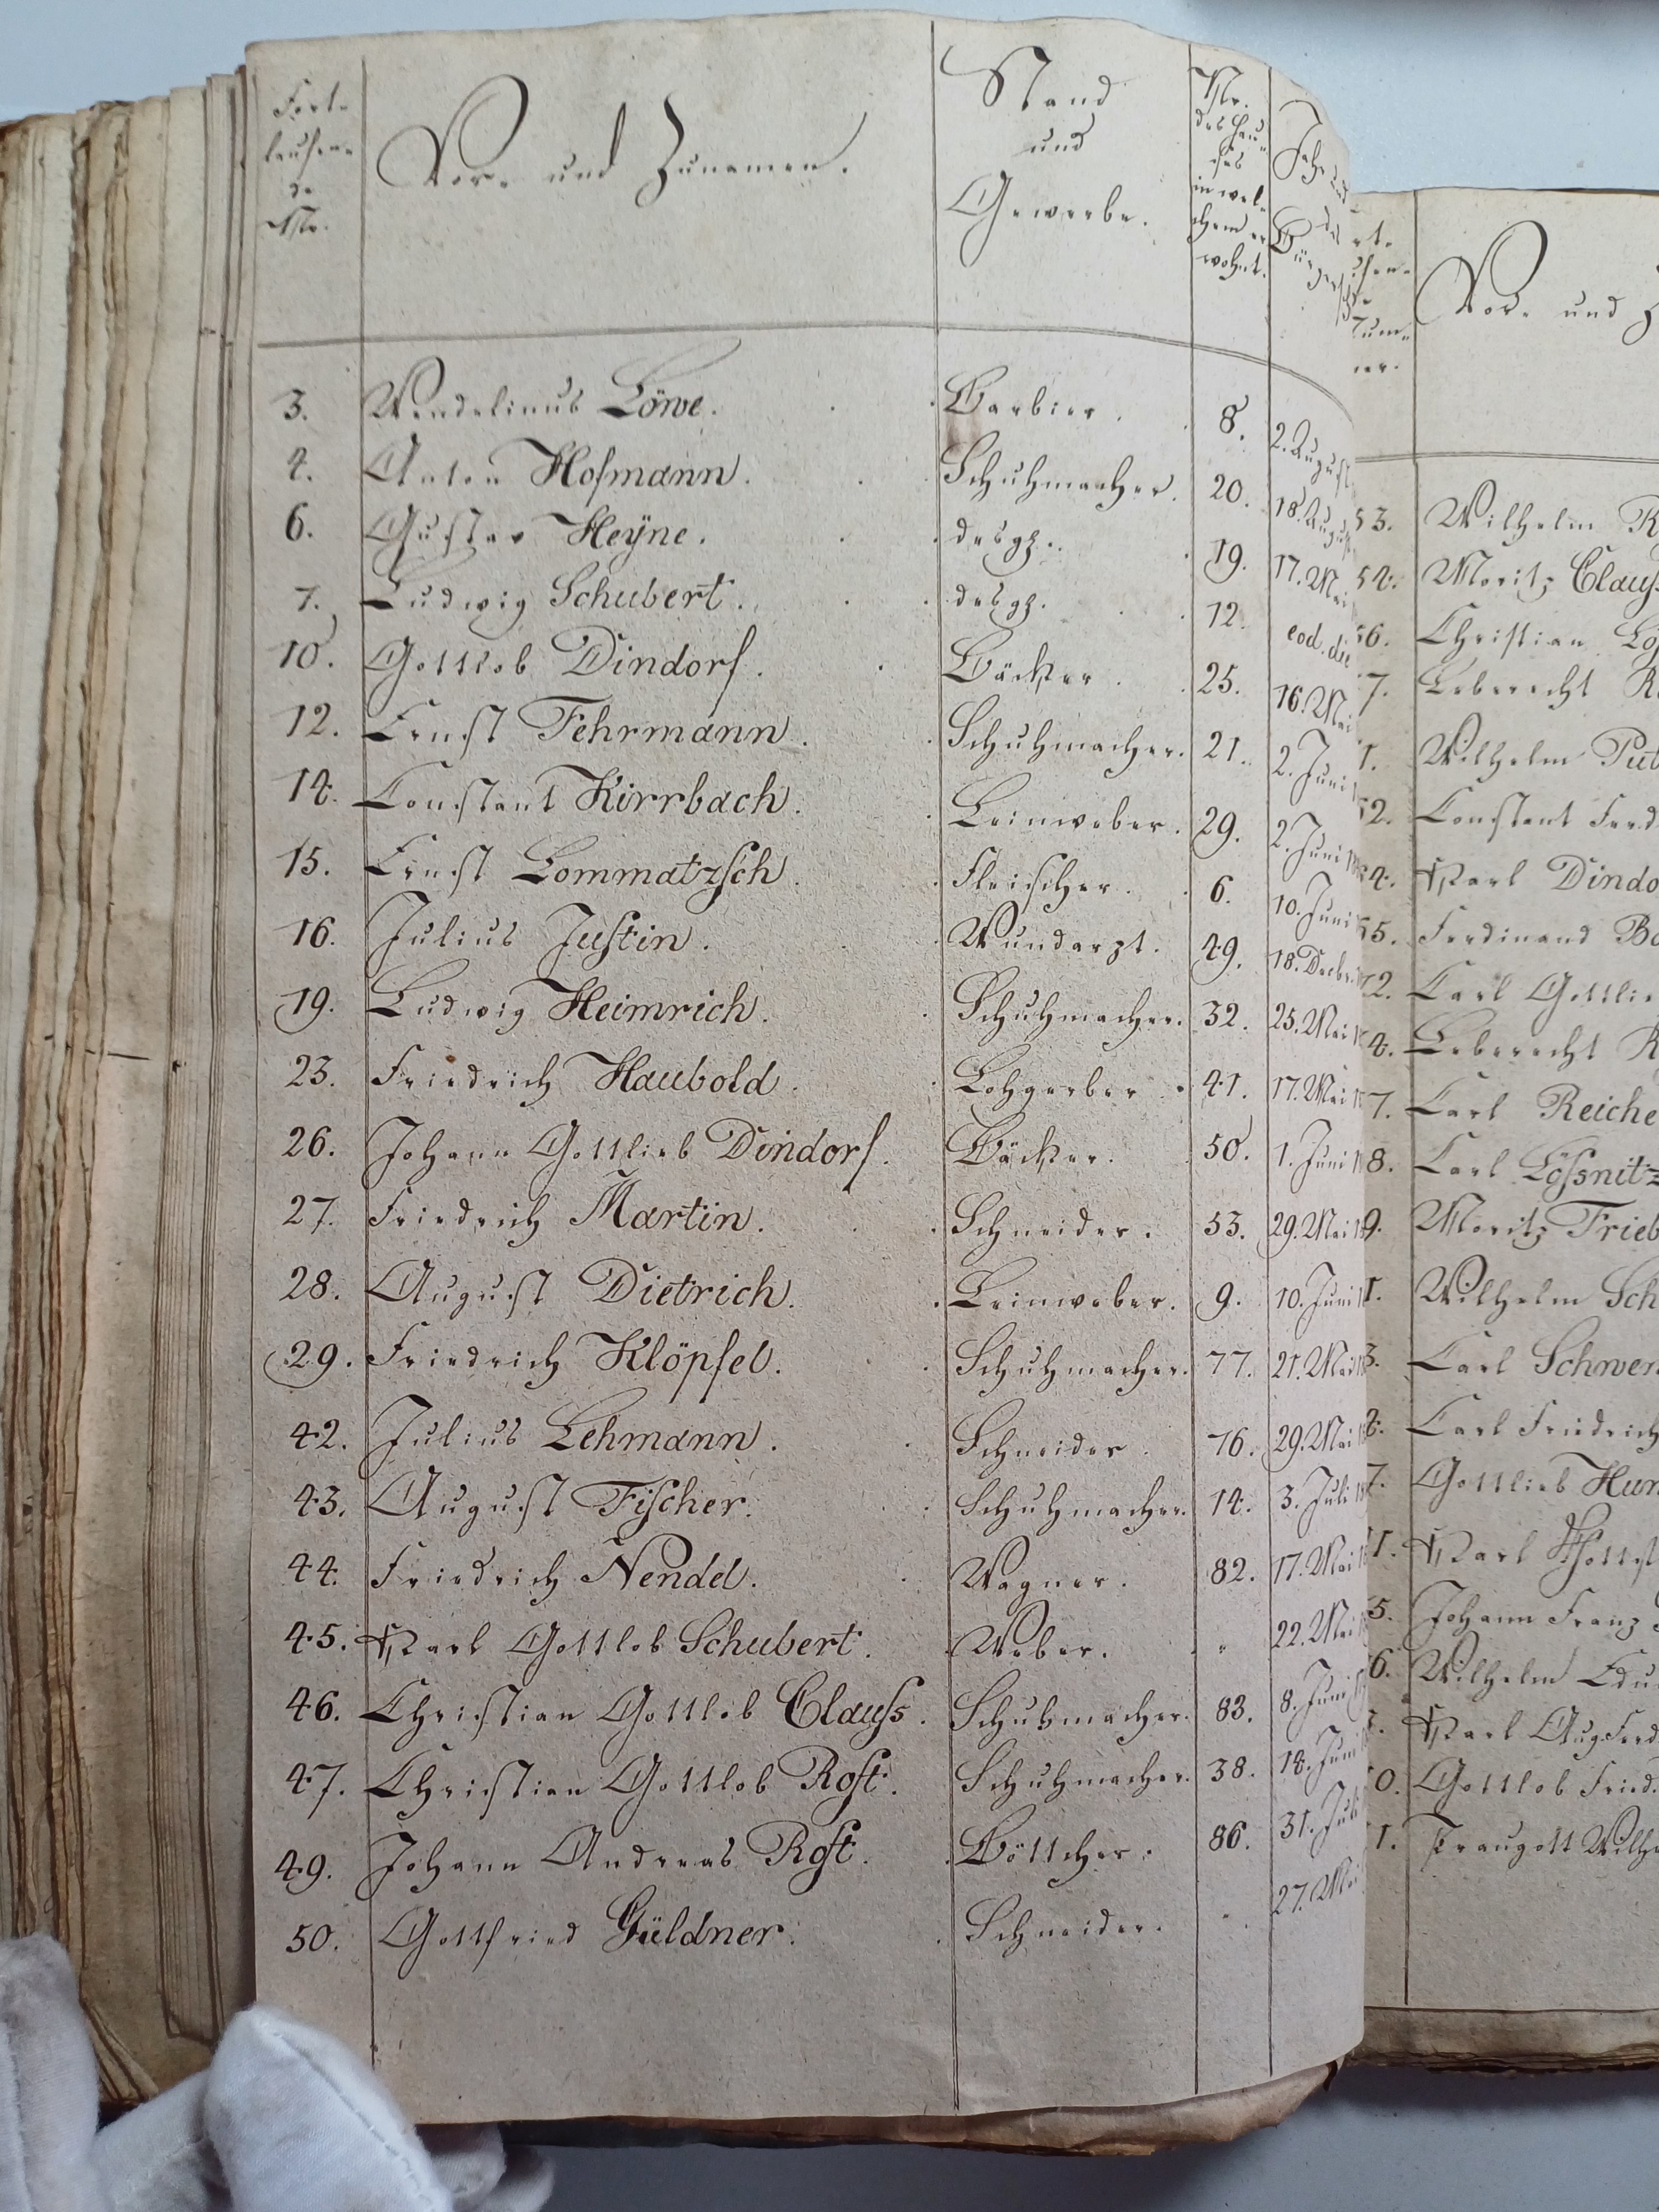 Fort-
laufen-
de
Nr.
Vor- und Zunamen.
Stand
und
Gewerbe.
Nr.
des Hau-
ses
in wel-
chem er
wohnt.
Jahr und
des
3. Wendelinus Löwe. Barbier. 8. 2. August
4. Anton Hofmann. Schuhmacher. 20. 18. August
6. Gustav Heÿne. desgl. 19. 17. Mai
7. Ludwig Schubert. desgl. 12. eod. die
10. Gottlob Dindorf. Bäcker. 25. 16. Mai
12. Ernst Fehrmann. Schuhmacher. 21. 2. Juni
14. Constant Kirrbach. Leinweber. 29. 2. Juni
15. Ernst Lommatzsch. Fleischer. 6. 10. Juni
16. Julius Justin. Wundarzt. 49. 18. Decbr.
19. Ludwig Heimrich. Schuhmacher. 32. 25. Mai
23. Friedrich Haubold. Lohgerber. 41. 17. Mai
26. Johann Gottlieb Dindorf. Bäcker. 50. 1. Juni
27. Friedrich Martin. Schneider. 53. 29. Mai
28. August Dietrich. Leinweber. 9. 10. Juni
29. Friedrich Klöpfel. Schuhmacher. 77. 21. Mai
42. Julius Lehmann. Schneider. 76. 29. Mai
43. August Fischer. Schuhmacher. 14. 3. Juli
44. Friedrich Nendel. Wagner. 82. 17. Mai
45. Karl Gottlob Schubert. Weber. " 22. Mai
46. Christian Gottlob Clauss. Schuhmacher. 83. 8. Juni
47. Christian Gottlob Rost. Schuhmacher. 38. 14. Juni
49. Johann Andreas Rost. Böttcher. 86. 31. Juli
50. Gottfried Güldner. Schneider. " 27. Mai
Vor- und
53. Wilhelm
54. Moritz Clauss
56. Christian
7. Leberecht
1. Wilhelm
52. Constant Ferd
4. Karl Dindo
55. Ferdinand
2. Carl Gottlie
4. Leberecht
7. Carl Reiche
8. Carl Lössnitz
9. Moritz Trieb
1. Wilhelm Sch
3. Carl Schwer
Carl Friedrich
7. Gottlieb
1. Karl
5. Johann Franz
6. Wilhelm Edu
Karl Aug. Ferd
0. Gottlob Fried.
1. Traugott Wilh